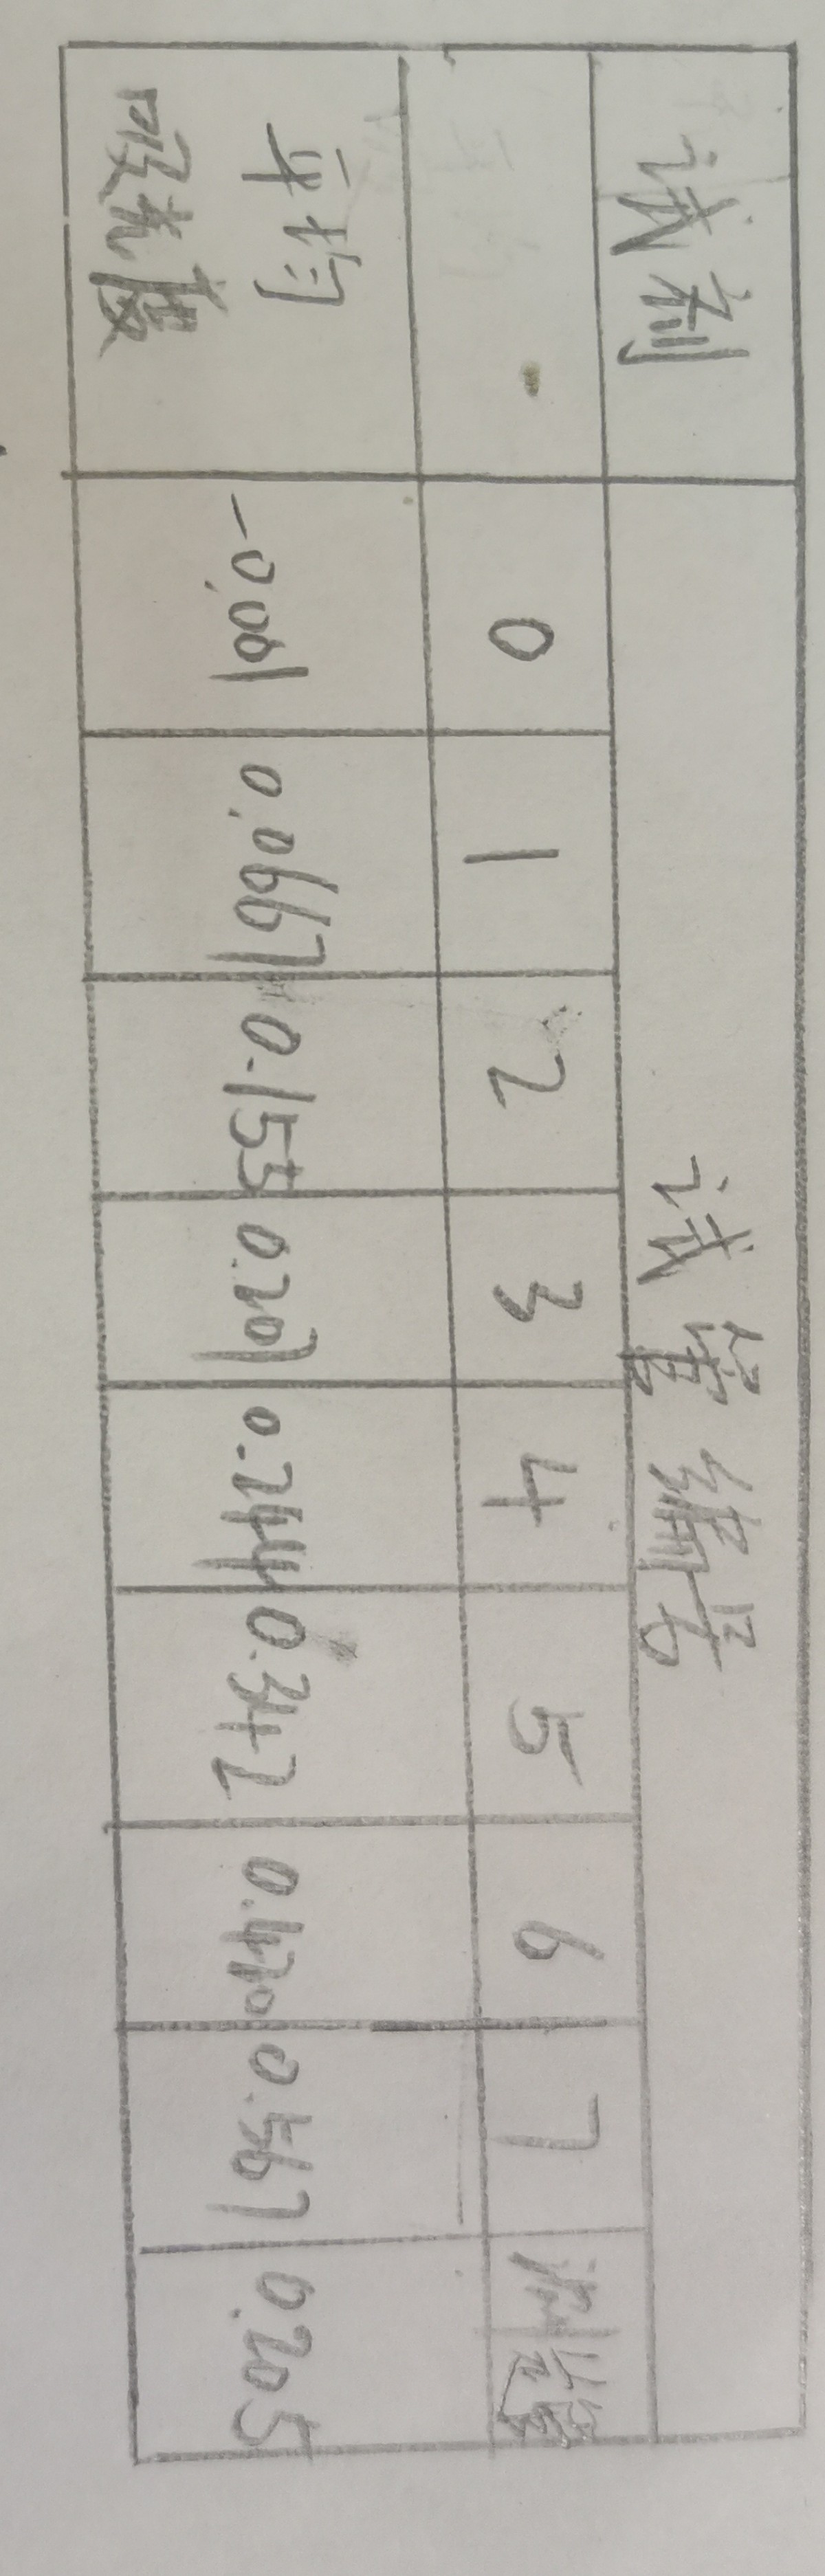 试剂 试管编号
0 1 2 3 4 5 6 7 测管
平均
吸光度 -0.001 0.0667 0.155 0.207 0.244 0.342 0.420 0.567 0.205